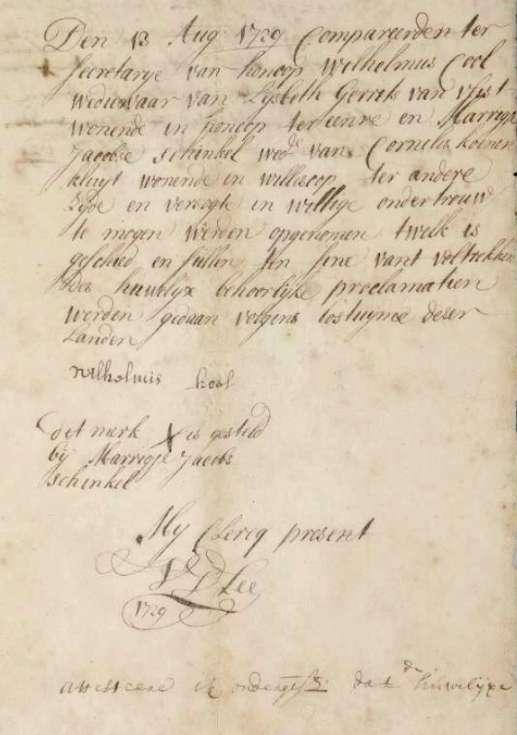 Den 13 Aug 1729 Compareerden ter
Secretarye van honcop Wilhelmus Cool
weduwnaar van Lysbeth Gerrets van Vliet
wonende in honcop ter eenre en Marrigje
Jacobse Schinkel wede van Cornelis koenen
kluyt wonende in willescop ter andere
zyde en versogte in willige ondertrouw
te mogen werden opgenomen twelk is
geschied en sullen ten fine vant voltrekken
des huwelijx behoorlijke proclamatien
werden gedaan volgens costuyme deser
Landen
wilhelmus kool
Dit merk X is gesteld
bij Marrigje Jacobs
Schinkel
My Clercq present
Lee
1729
ik ondergesz dat de huwelijxe